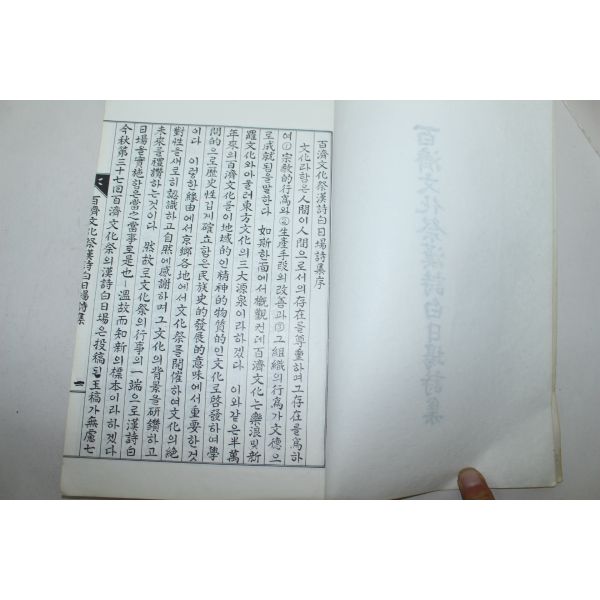 百濟文化祭漢詩白日場詩集
百濟文化祭漢詩白日場詩集序
文化라함은人間이人間으로서의存在를尊重하며그存在를爲하
여①宗敎的行爲와②生産手段의改善과③그組織의行爲가文德으
로成就됨을말한다 如斯한面에서槪觀컨데百濟文化는樂浪및新
羅文化와아울러東方文化의三大源泉이라하겠다 이와같은半萬
年來의百濟文化을이地域的인精神的物質的인文化로啓發하여學
問的으로歷史性깊게確立함은民族史的發展的意味에서重要한것
이다 이렇한緣由에서京鄕各地에서文化祭를開催하여文化의絶
對性을새로히認識하고自然에感謝하며그文化의背景을硏鑽하고
未來를禮讚하는것이다 然故로文化祭의行事의一端으로漢詩白
日場을實施함은當之當事로是也-溫故而知新의標本이라하겠다
今秋第三十七回百濟文化祭의漢詩白日場은投稿된玉稿가無慮七
百濟文化祭漢詩白日場詩集 一